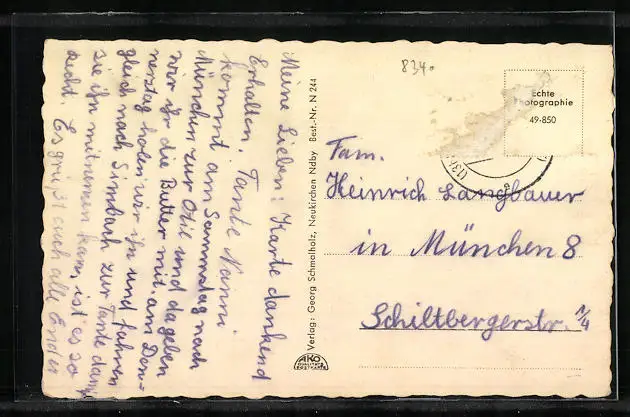 Meine Lieben: Karte dankend
Erhalten. Tante Nanni
kommt am Sammstag nach
München zur Otil und da geben
wir ihr die Butter mit. am Don-
nerstag holen wir ihn und fahren
gleich nach Simbach zur Tante damit
sie ihn mitnemen kan, ist es so
Recht. Es grüßt euch alle
Verlag: Georg Schmalholz, Neukirchen Ndby Best.-Nr. N 244
AKO
834
Echte
Photographie
49-850
Fam.
Heinrich Langbauer
in München 8
Schiltbergerstr. 1/4